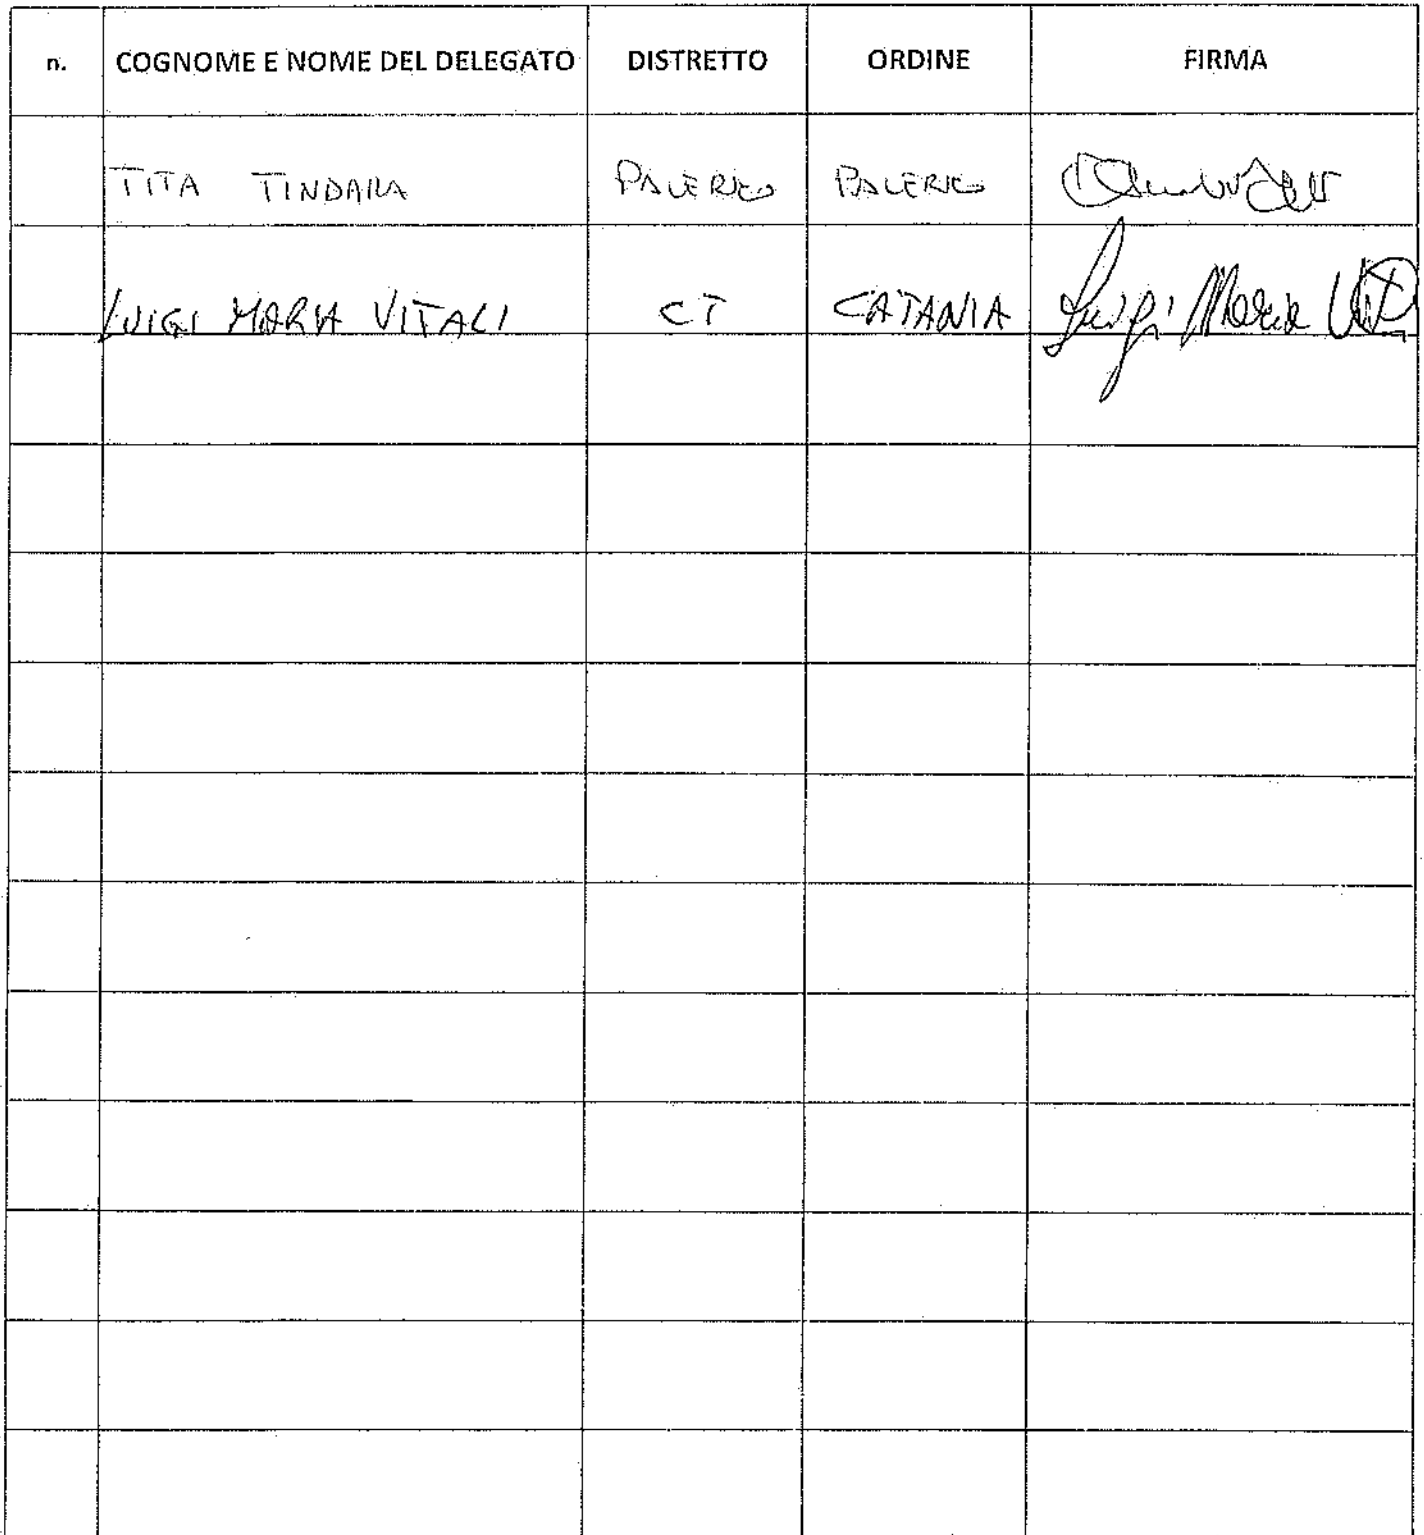 n. COGNOME E NOME DEL DELEGATO DISTRETTO ORDINE FIRMA
TITA TINDARA PALERMO PALERMO
LUIGI MARIA VITALI CT CATANIA Luigi Maria Vitali